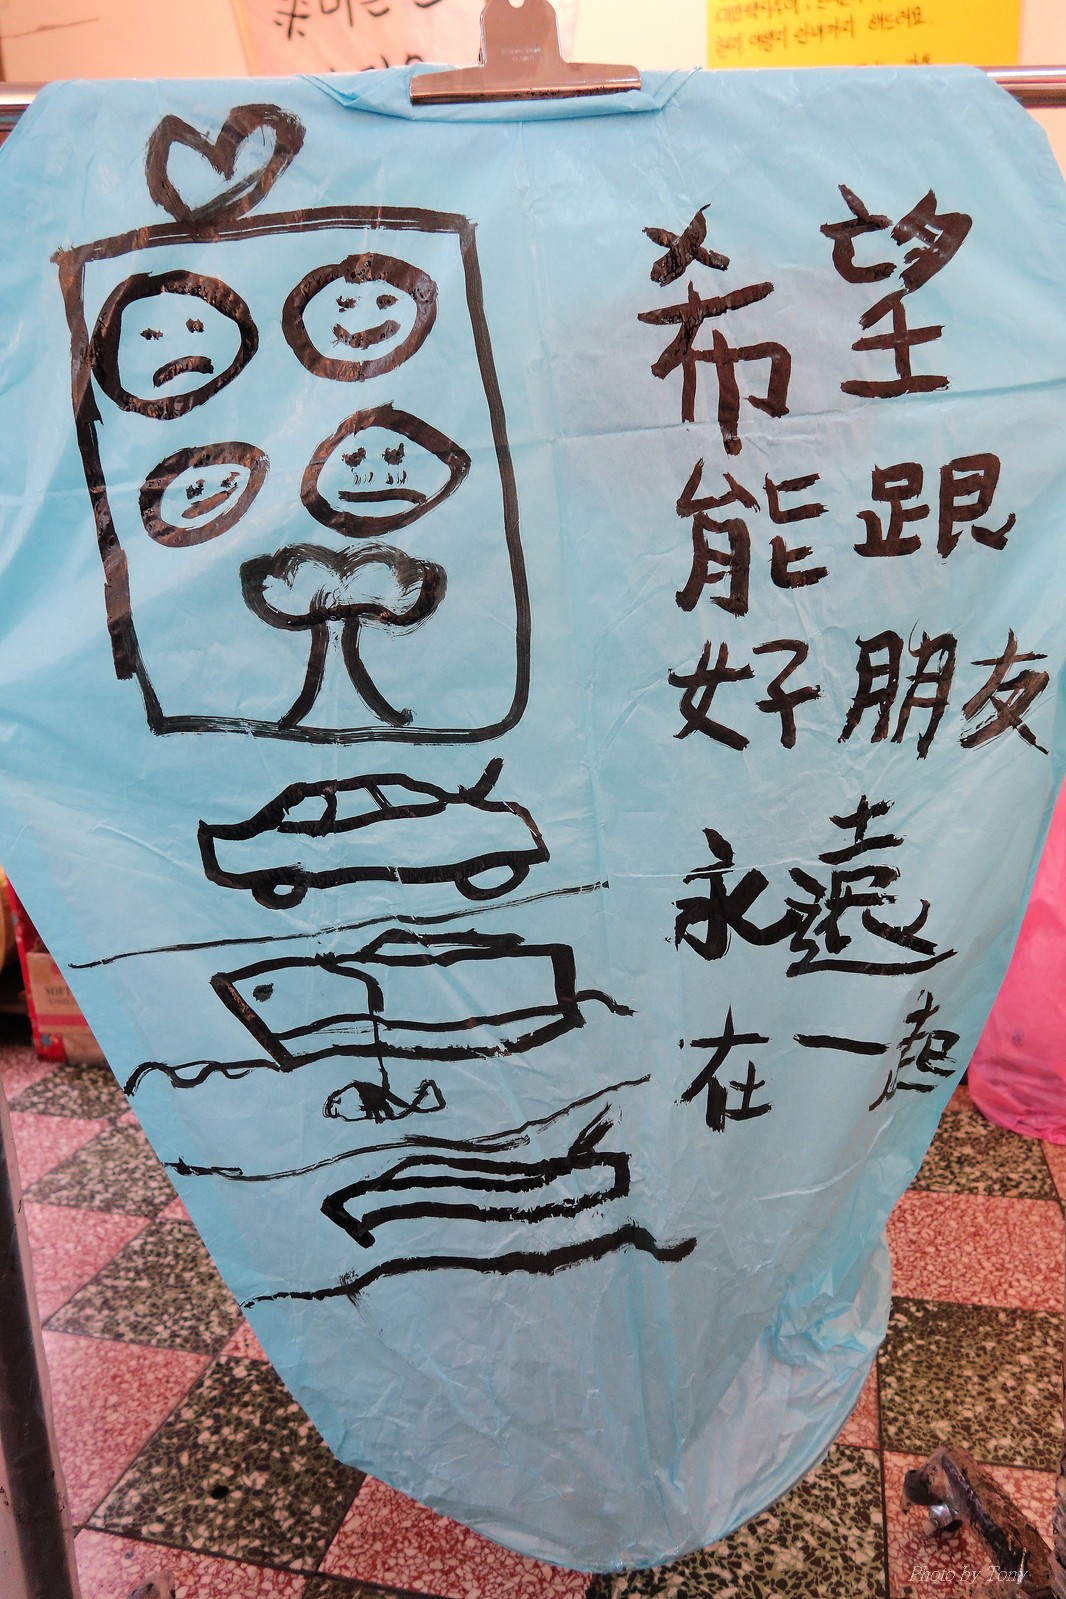 希望
能跟
好朋友
永遠
在一起
Photo by Tony